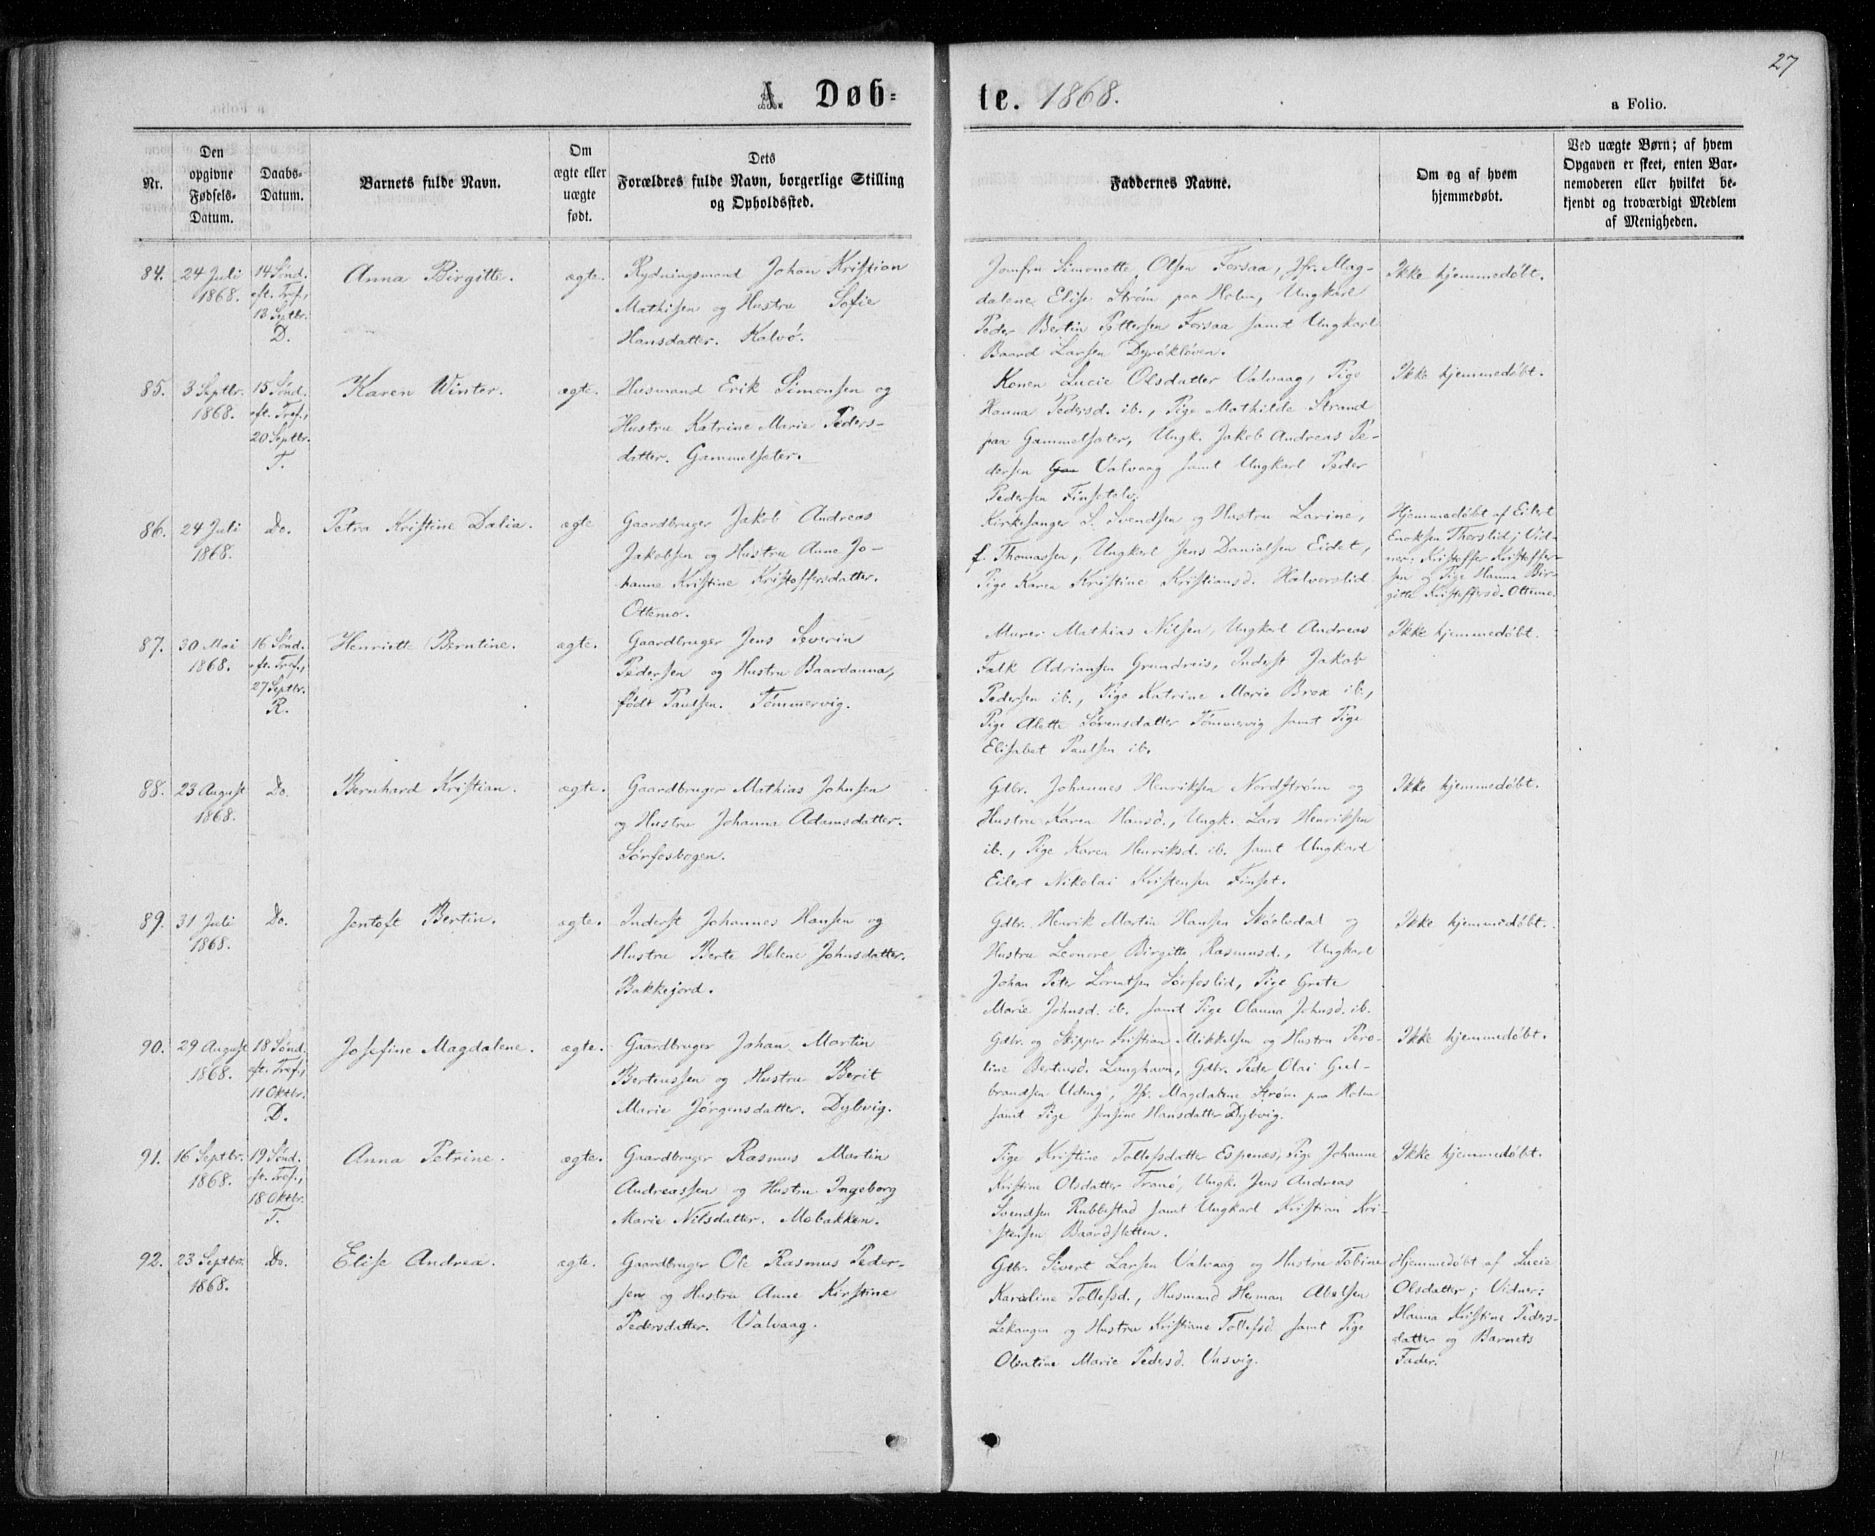 27
A. Døbte. 1868.
a Folio.
Nr.
Den opgivne Fødsels-Datum.
Daabs-Datum.
Barnets fulde Navn.
Om ægte eller uægte født.
Dets Forældres fulde Navn, borgerlige Stilling og Opholdssted.
Faddernes Navne.
Om og af hvem hjemmedøbt.
Ved uægte Børn; af hvem Opgaven er skeet, enten Barnemoderen eller hvilket bekjendt og troværdigt Medlem af Menigheden.
84.
24 Juli
1868.
14 Sønd.
eft. Tref.,
13 Septbr.
D.
Anna Birgitte.
ægte.
Rydningsmand Johan Kristian
Mathisen og Hustru Sofie
Hansdatter. Kalvø.
Jomfru Simonette Olsen Forsaa, Jfr. Mag-
dalene Elise Strøm paa Holm, Ungkarl
Peder Bertin Pettersen Forsaa samt Ungkarl
Baard Larsen Dyrökløven.
Ikke hjemmedøbt.
85.
3 Septbr.
1868.
15 Sønd.
eft. Tref.,
20 Septbr.
T.
Karen Winter.
ægte.
Husmand Erik Simonsen og
Hustru Katrine Marie Peders-
datter. Gammelsæter.
Konen Lucie Olsdatter Valvaag, Pige
Hanna Pedersd. ib., Pige Mathilde Strand
paa Gammelsæter, Ungk. Jakob Andreas Pe-
dersen Valvaag samt Ungkarl Peder
Pedersen Finsetelv.
Ikke hjemmedøbt.
86.
24 Juli
1868.
Do.
Petra Kristine Dalia.
ægte
Gaardbruger Jakob Andreas
Jakobsen og Hustru Anne Jo-
hanne Kristine Kristoffersdatter.
Ottemo.
Kirkesanger S. Svendsen og Hustru Larine,
f. Thomassen, Ungkarl Jens Danielsen Eidet,
Pige Karen Kristine Kristiansd. Halvorslid
Hjemmedøbt af Eilert
Enoksen Thorslid; Vid-
ner: Kristoffer Kristoffer-
sen og Pige Hanna Bir-
gitte Kristoffersd. Ottemo.
87.
30 Mai
1868.
16 Sønd.
eft. Tref.,
27 Septbr.
R.
Henriette Berntine.
ægte.
Gaardbruger Jens Severin
Pedersen og Hustru Baardanna,
født Paulsen. Tømmervig.
Murer Mathias Nilsen, Ungkarl Andreas
Falk Adriansen Grundreis, Inderst Jakob
Pedersen ib., Pige Katrine Marie Brox ib.,
Pige Alette Sørensdatter Tømmervig samt Pige
Elisabet Paulsen ib.
Ikke hjemmedøbt.
88.
23 August
1868.
Do.
Bernhard Kristian.
ægte.
Gaardbruger Mathias Johnsen
og Hustru Johanna Adamsdatter.
Sørfosbogen.
Gdbr. Johannes Henriksen Nordstrøm og
Hustru Karen Hansd., Ungk. Lars Henriksen
ib., Pige Karen Henriksd. ib. samt Ungkarl
Eilert Nikolai Kristensen Finset.
Ikke hjemmedøbt.
89.
31 Juli
1868.
Do.
Jentoft Bertin.
ægte.
Inderst Johannes Hansen og
Hustru Berte Helene Johnsdatter.
Bakkejord.
Gdbr. Henrik Martin Hansen Skøeledal og
Hustru Leonore Birgitte Rasmusd., Ungkarl
Johan Peter Lorentsen Sørfoslid, Pige Grete
Marie Johnsd. ib. samt Pige Olanna Johnsd. ib.
Ikke hjemmedøbt.
90.
29 August
1868.
18 Sønd.
eft. Tref.,
11 Oktbr.
D.
Josefine Magdalene.
ægte.
Gaardbruger Johan Martin
Berteussen og Hustru Berit
Marie Jørgensdatter. Dybvig.
Gdbr. og Skipper Kristian Mikkelsen og Hustru Pero-
line Berteusd. Langhavn, Gdbr. Peder Olai Gul-
brandsen Udeng, Jfr. Magdalene Strøm paa Holm
samt Pige Jensine Hansdatter Dybvig.
Ikke hjemmedøbt.
91.
16 Septbr.
1868.
19 Sønd.
eft. Tref.,
18 Oktbr.
T.
Anna Petrine.
ægte.
Gaardbruger Rasmus Martin
Andreassen og Hustru Ingeborg
Marie Nilsdatter. Mobakken.
Pige Kristine Tollefsdatter Espenes, Pige Johanne
Kristine Olsdatter Tranö, Ungk. Jens Andreas
Svendsen Rubbestad samt Ungkarl Kristian Kri-
stensen Baardsletten.
Ikke hjemmedøbt.
92.
23 Septbr.
1868.
Do.
Elise Andrea.
ægte.
Gaardbruger Ole Rasmus Peder-
sen og Hustru Anne Kirstine
Pedersdatter. Valvaag.
Gdbr. Sivert Larsen Valvaag og Hustru Tobine
Karoline Tollefsd., Husmand Herman Abelsen
Lekangen og Hustru Kristiane Tollefsd. samt Pige
Olentine Marie Pedersd. Vasvig.
Hjemmedøbt af Lucie
Olsdatter; Vidner:
Hanna Kristine Peders-
datter og Barnets
Fader.